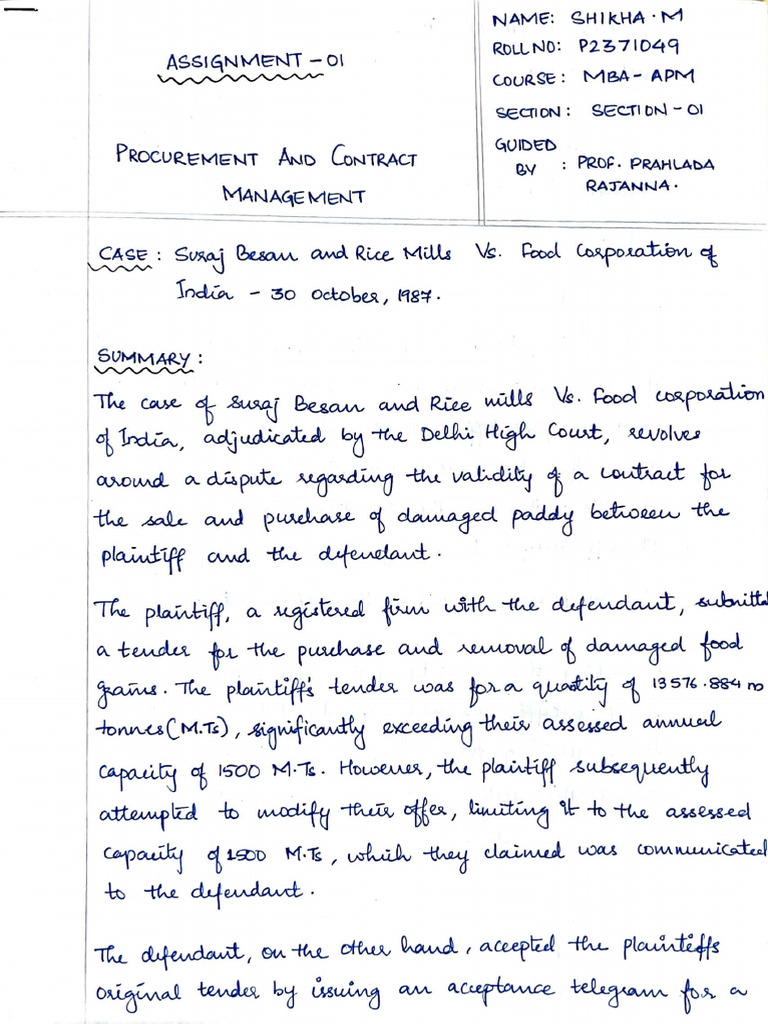 ASSIGNMENT - 01
PROCUREMENT AND CONTRACT
MANAGEMENT
NAME: SHIKHA.M
ROLL NO: P2371049
COURSE: MBA - APM
SECTION: SECTION - 01
GUIDED
BY : PROF. PRAHLADA
RAJANNA.
CASE: Suraj Besan and Rice Mills Vs. Food Corporation of
India - 30 October, 1987.
SUMMARY:
The case of Suraj Besan and Rice mills Vs. Food corporation
of India, adjudicated by the Delhi High Court, revolves
around a dispute regarding the validity of a contract for
the sale and purchase of damaged paddy between the
plaintiff and the defendant.
The plaintiff, a registered firm with the defendant, submitt
a tender for the purchase and removal of damaged food
grains. The plaintiff's tender was for a quantity of 13576.884
tonnes (M.Ts), significantly exceeding their assessed annual
capacity of 1500 M.Ts. However, the plaintiff subsequently
attempted to modify their offer, limiting it to the assessed
capacity of 1500 M.Ts, which they claimed was communicated
to the defendant.
The defendant, on the other hand, accepted the plaintiffs
original tender by issuing an acceptance telegram for a